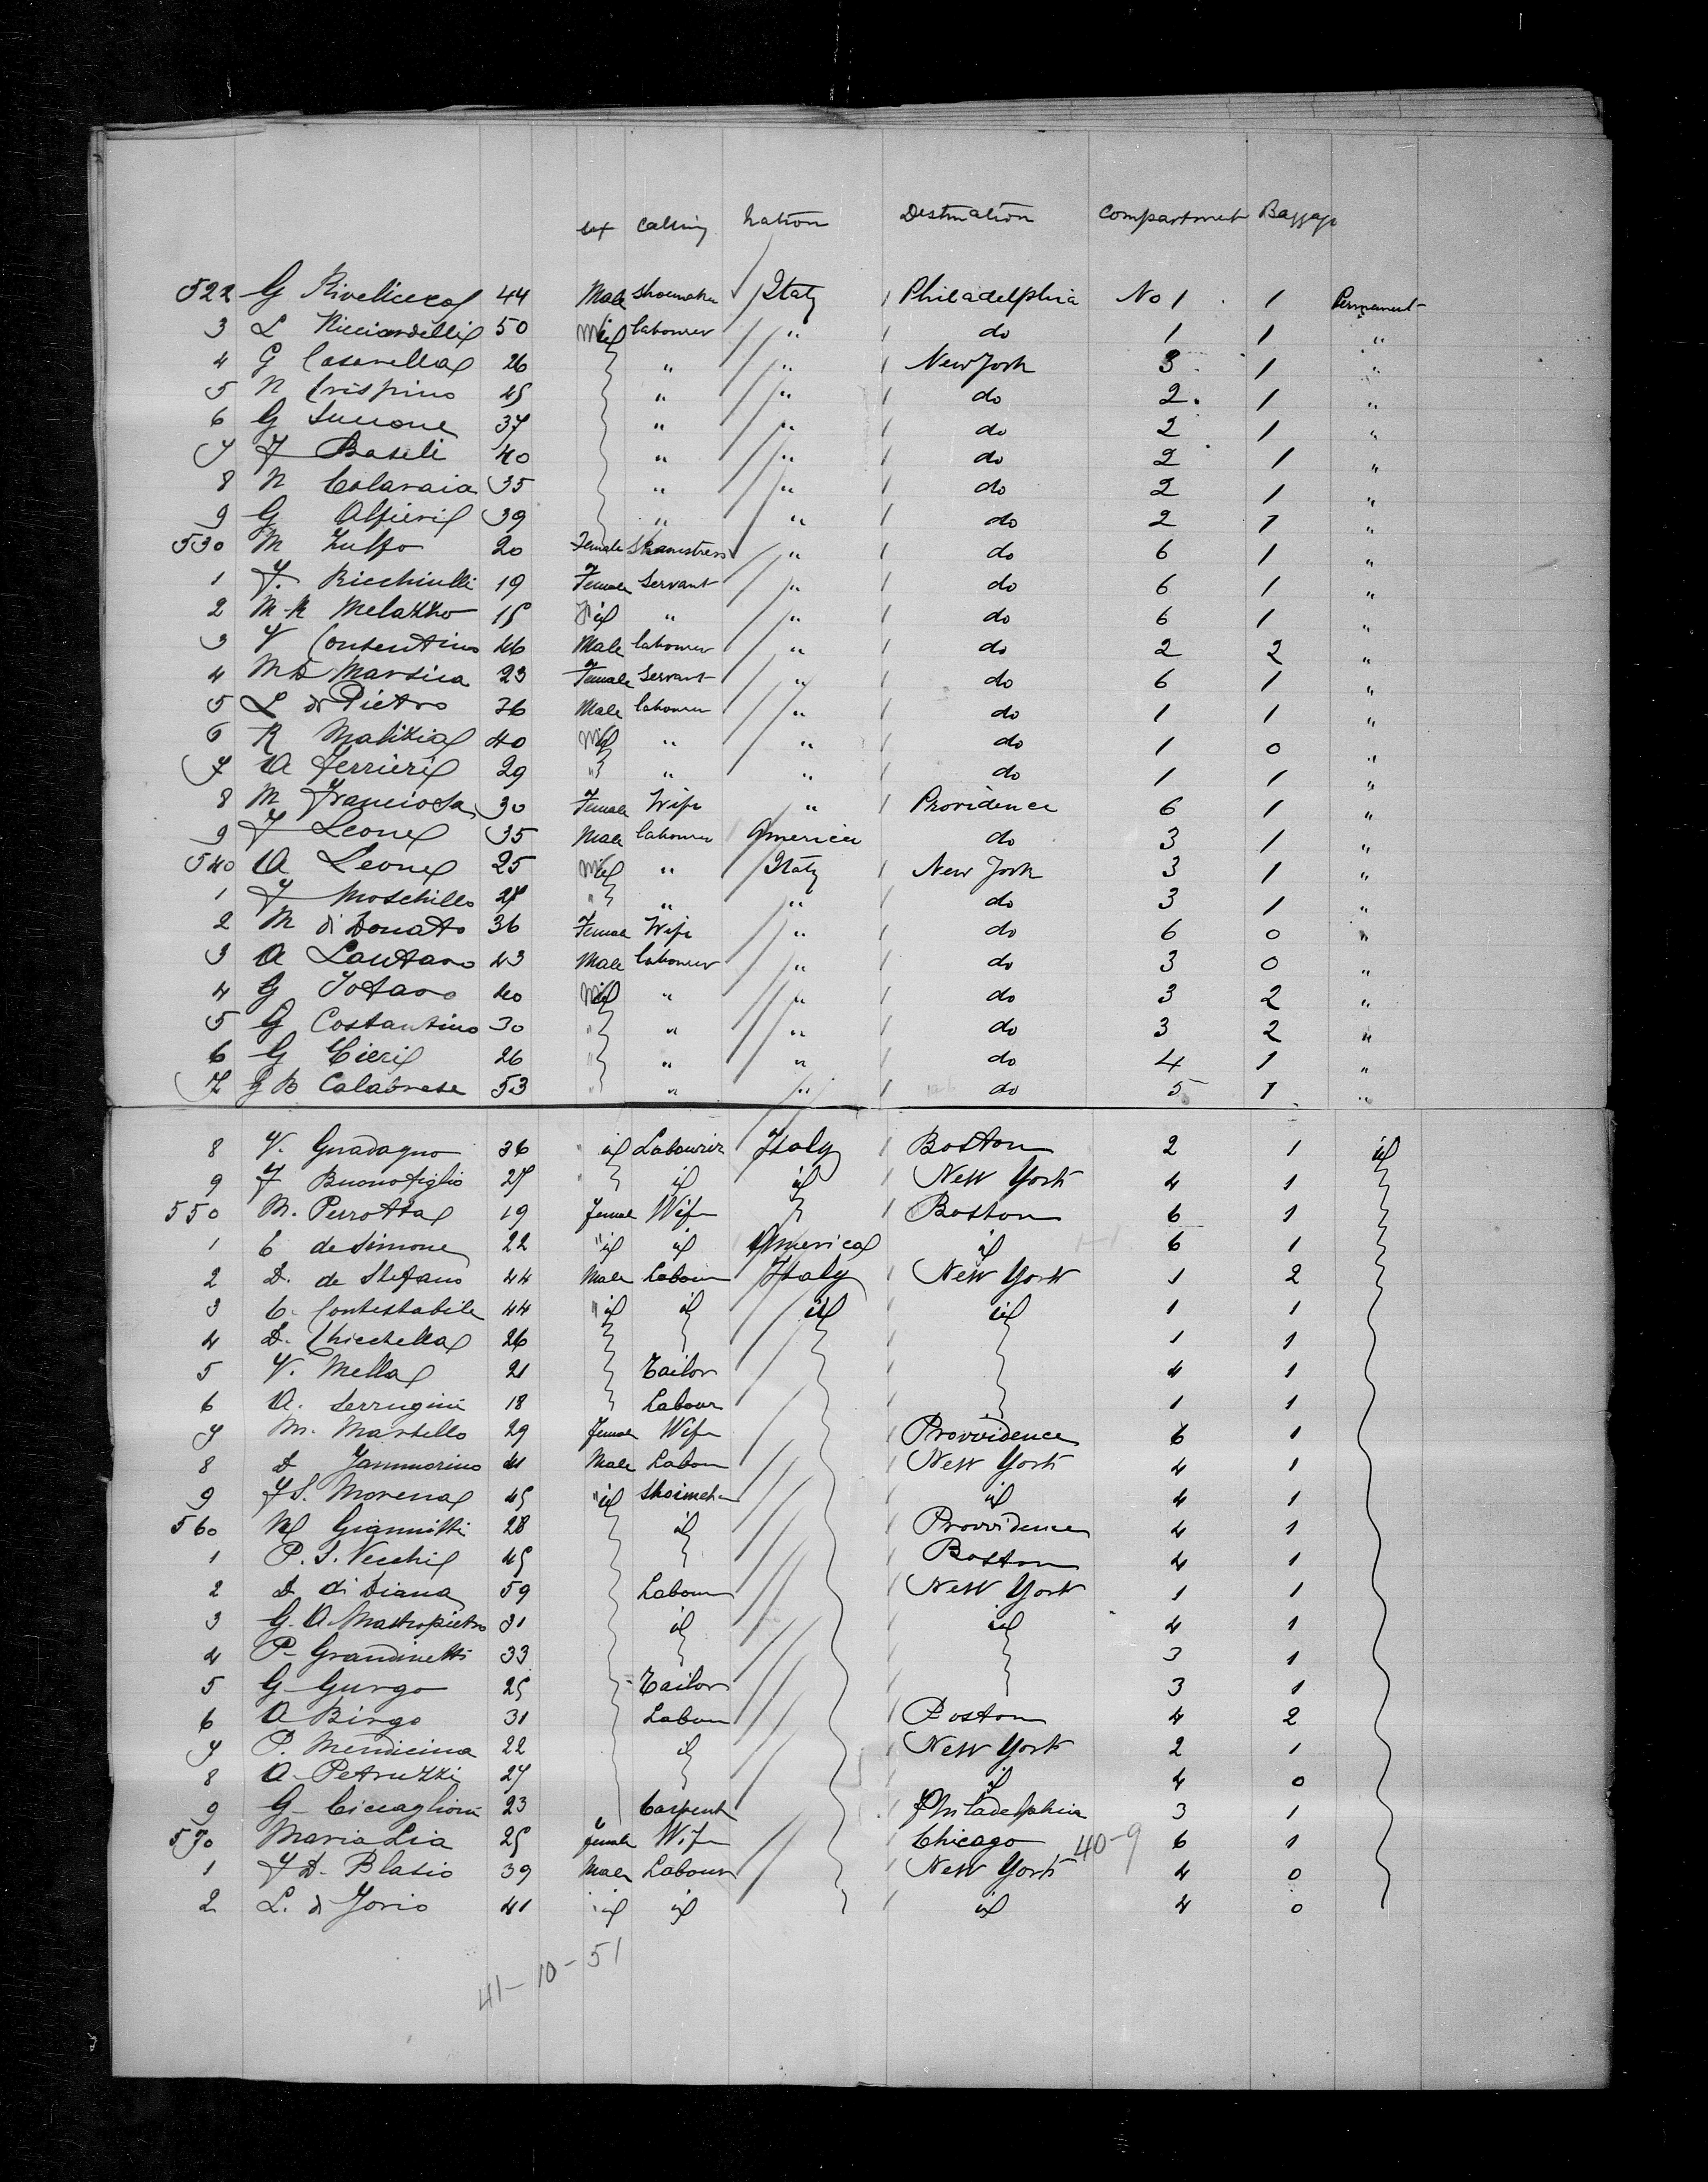 sex calling Nation Destination Compartment Baggage
522 G 44 Male Shoemaker Italy 1 Philadelphia No 1 1 Permanent
3 L Ricciardelli 50 id labourer " 1 do 1 1 "
4 G Casarella 26 " " 1 New York 3 1 "
5 N Crispino 45 " " 1 do 2 1 "
6 G 37 " " 1 do 2 1 "
7 F Basili 40 " " 1 do 2 1 "
8 N Colaraia 35 " " 1 do 2 1 "
9 G Alfieri 39 " " do 2 1 "
530 M Zulfo 20 Female " 1 do 6 1 "
1 F. Ricchiulli 19 Female Servant " 1 do 6 1 "
2 M. R Melazzo 15 id " " 1 do 6 1 "
3 V Cosentino 46 Male labourer " 1 do 2 2 "
4 M D Marsica 23 Female Servant " 1 do 6 1 "
5 L di Pietro 36 Male labourer " 1 do 1 1 "
6 R Malizia 40 id " " 1 do 1 0 "
7 A Ferrieri 29 " " " 1 do 1 1 "
8 M Franciosa 30 Female Wife " 1 Providence 6 1 "
9 F Leone 35 Male labourer America do 3 1 "
540 A Leone 25 id " Italy 1 New York 3 1 "
1 F Moschillo 28 " " " 1 do 3 1 "
2 M di Donato 36 Female Wife " 1 do 6 0 "
3 A Lautaro 43 Male labourer " 1 do 3 0 "
4 G Totaro 40 id " " 1 do 3 2 "
5 G Costantino 30 " " " 1 do 3 2 "
6 G Cieri 26 " " " 1 do 4 1 "
7 G B Calabrese 53 " " " 1 do 5 1 "
8 V. Guadagno 36 " id Labourer Italy 1 Boston 2 1 id
9 F Buonofiglio 25 id id 1 New York 4 1
550 M. Perrotta 19 Female Wife 1 Boston 6 1
1 C de Simone 22 " id id America id 6 1
2 D. de Stefano 44 Male Labour Italy 1 New York 1 2
3 C. Contestabile 44 " id id id 1 id 1 1
4 D. Chicchella 26 1 1 1
5 V. Mella 21 Tailor 1 4 1
6 A. Serrugini 18 Labour 1 1 1
7 M. Martello 29 Female Wife 1 Provvidence 6 1
8 D Jammorino 41 Male Labour 1 New York 4 1
9 F S. Morena 45 " id 1 id 4 1
560 N Giannitti 28 id 1 Provvidence 4 1
1 P. S. Vecchi 45 1 Boston 4 1
2 D di Diana 59 Labour 1 New York 1 1
3 G. A. Mastropietro 31 id 1 id 4 1
4 P. Grandinetti 33 1 3 1
5 G Gurgo 25 Tailor 1 3 1
6 A Bingo 31 Labour 1 Boston 4 2
7 P. Mendicina 22 id 1 New York 2 1
8 A. Petruzzi 27 1 id 4 0
9 G. Ciccaglioni 23 Carpent 1 Philadelphia 3 1
570 Maria Lia 25 Female Wife 1 Chicago 40-9 6 1
1 F D. Blasio 39 Male Labour 1 New York 4 0
2 L. di Jorio 41 id id 1 id 4 0
41-10-51